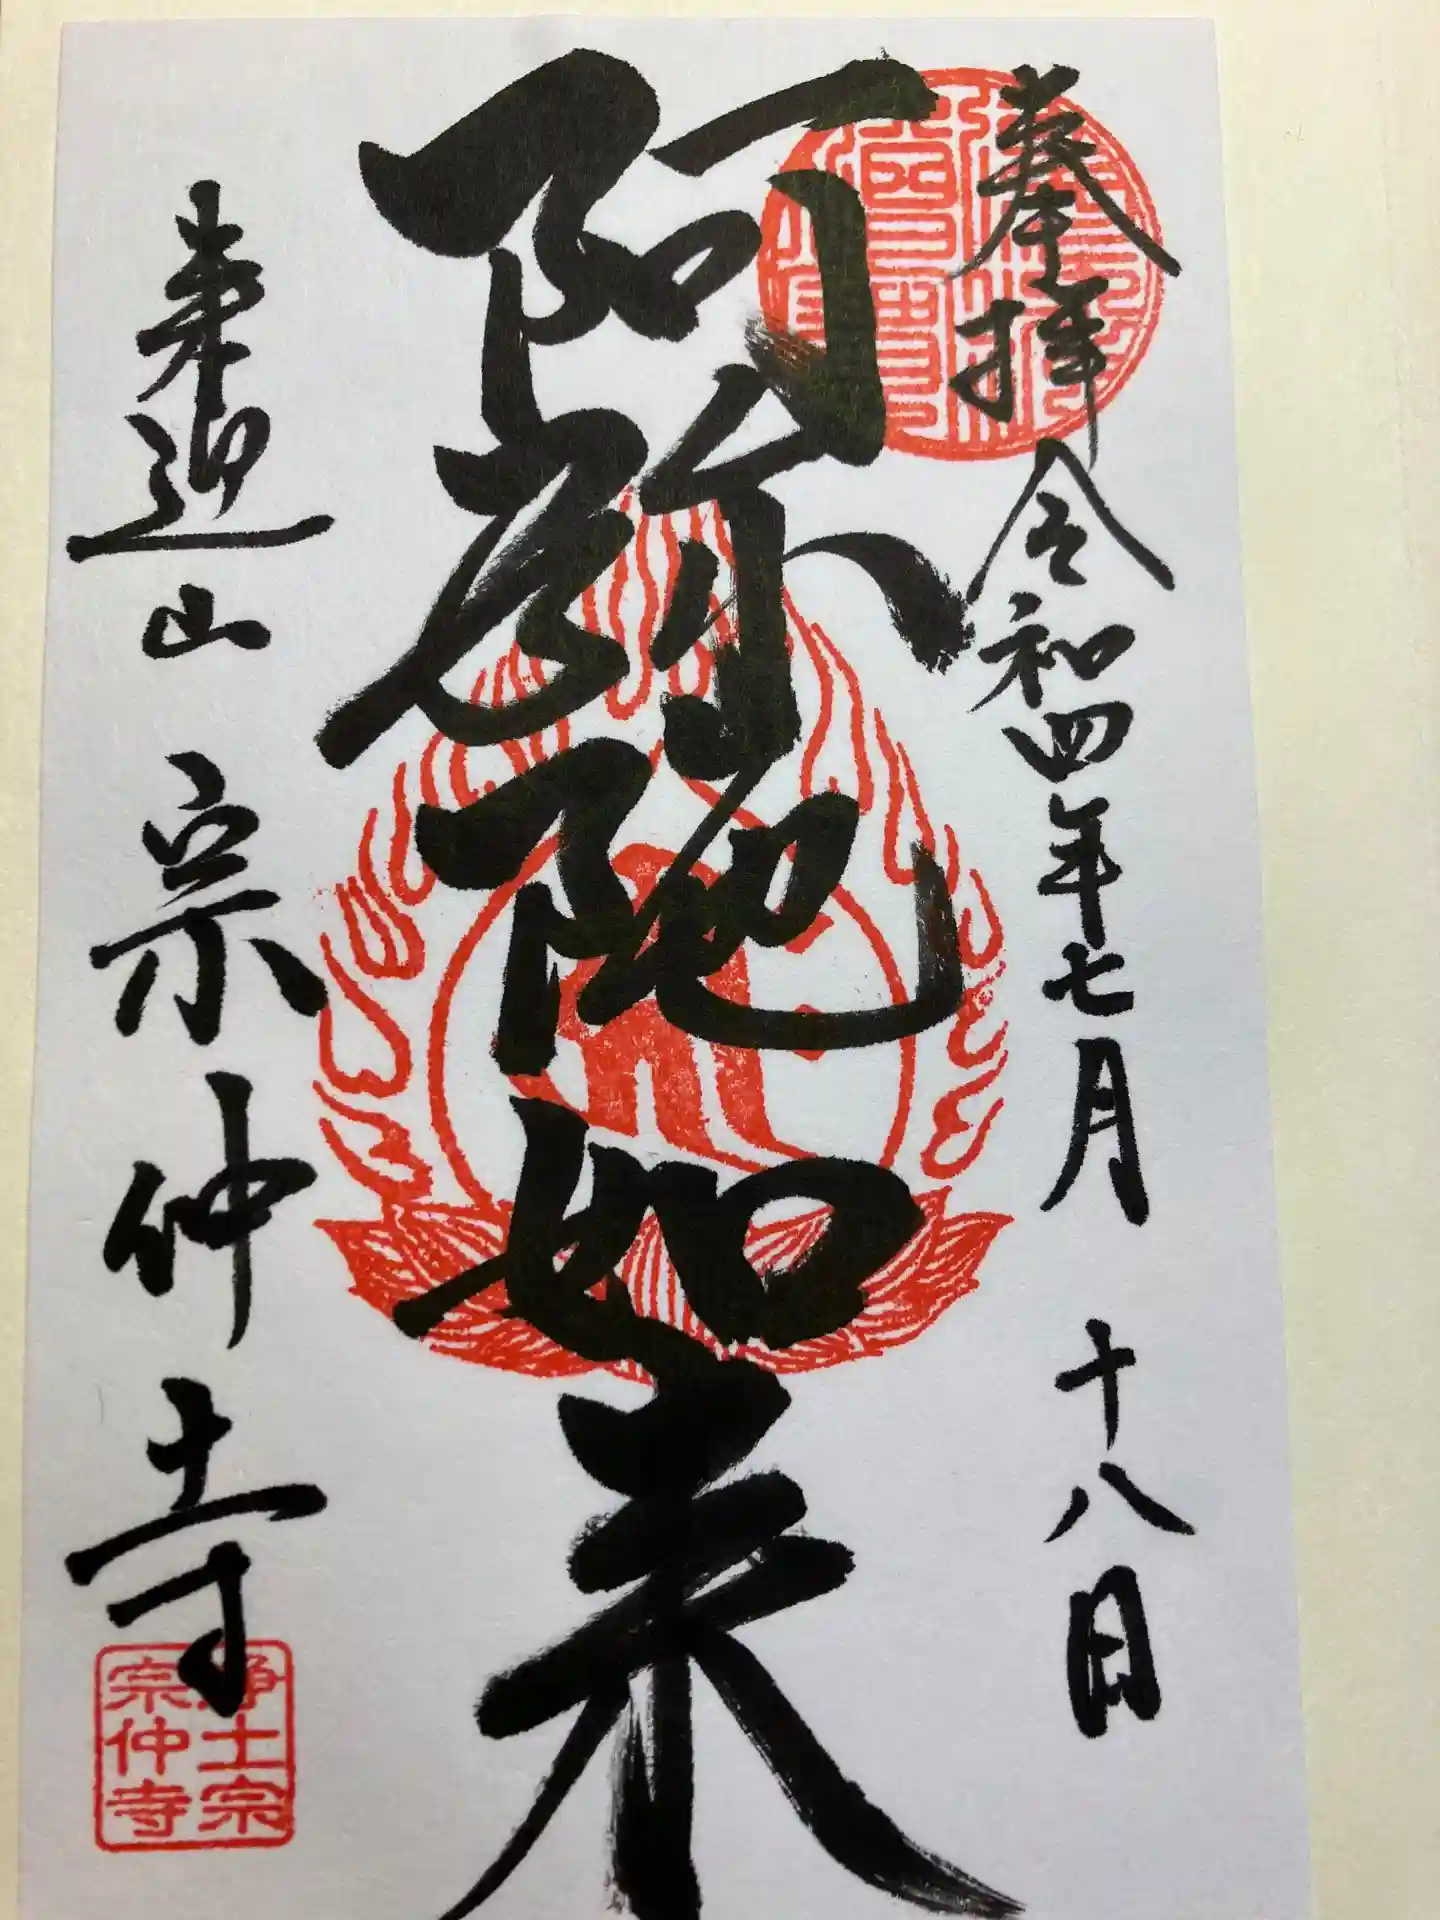 奉拝 令和四年七月十八日
阿弥陀如来
来迎山 宗仲寺
浄土宗
宗仲寺